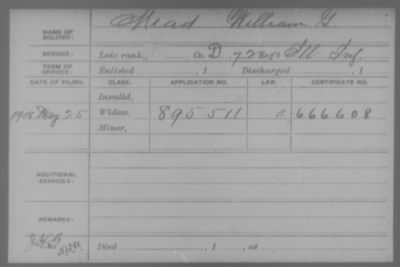 NAME OF SOLDIER: Mead William G.
SERVICE: Late rank, Co. D, 72 Reg't Ill Inf.
TERM OF SERVICE: Enlisted , 1 Discharged , 1
DATE OF FILING. CLASS. APPLICATION NO. LAW. CERTIFICATE NO.
Invalid,
1908 May 25 Widow, 895511 666608
Minor,
ADDITIONAL SERVICES:
REMARKS:
Died , 1 , at